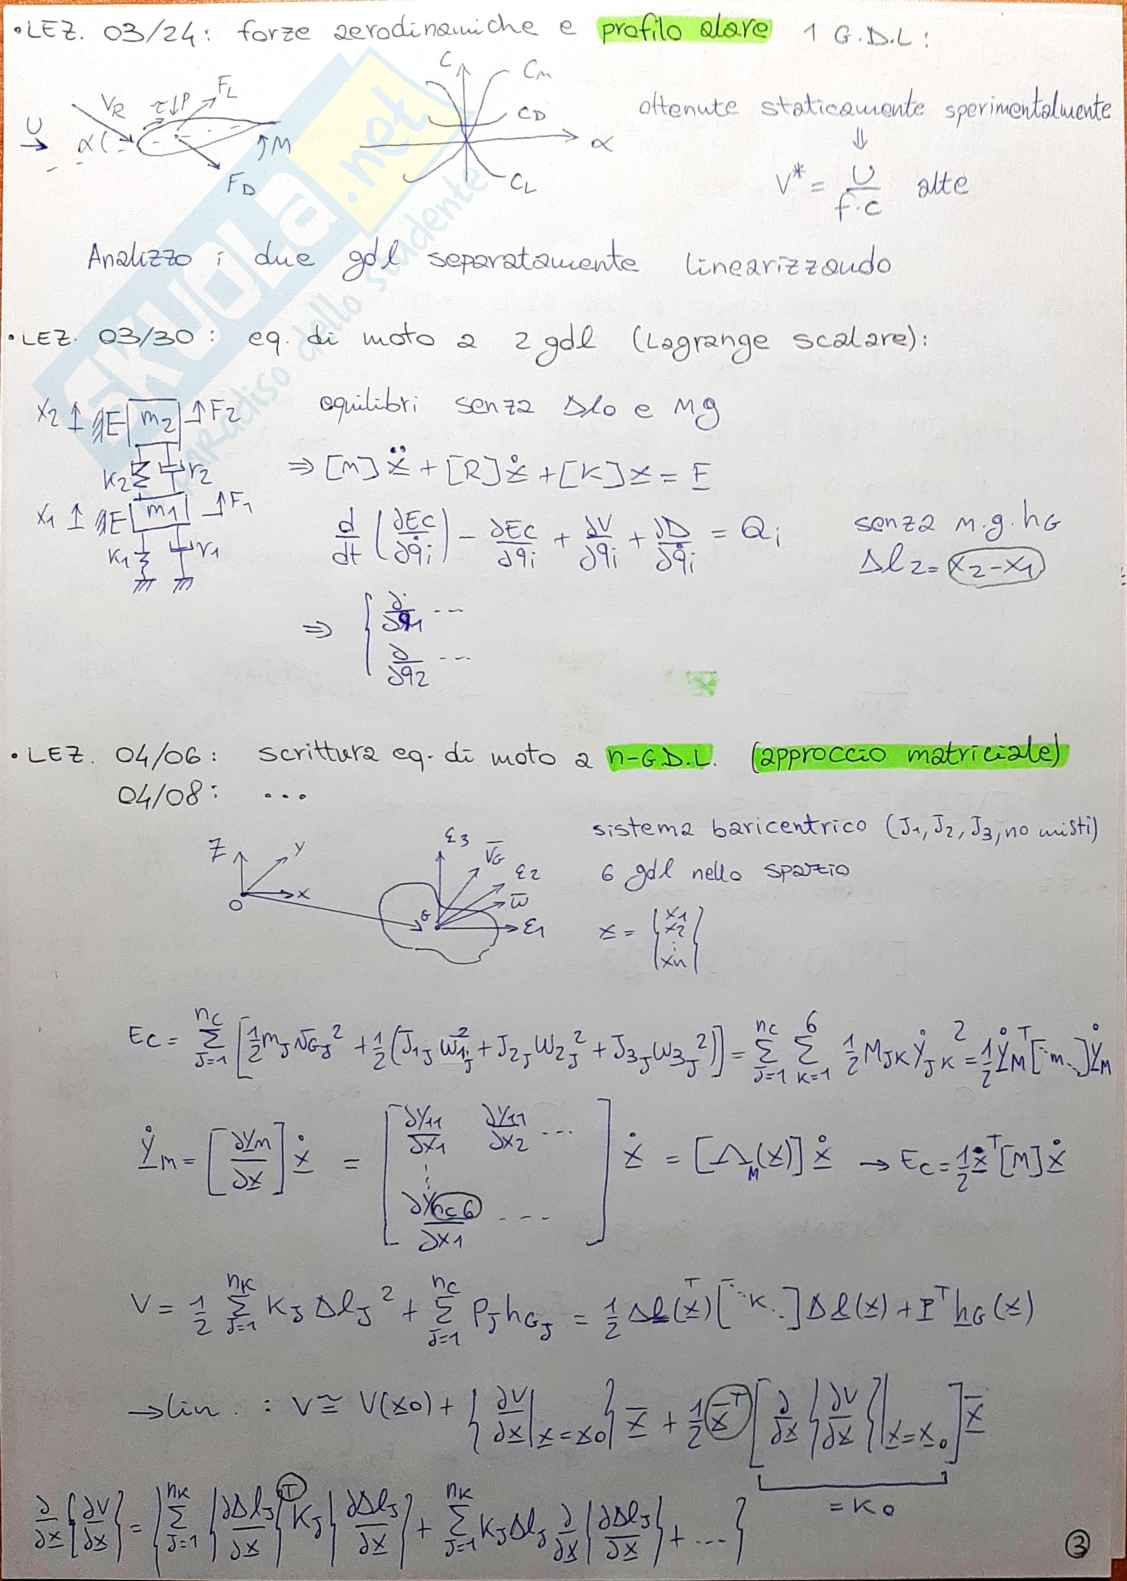 • LEZ. 03/24: forze aerodinamiche e profilo alare 1 G.D.L:
U α VR τ↓P FL FD ↑M
C CM CD CL α
ottenute staticamente sperimentalmente
⇓
V* = U/(f·c) alte
Analizzo i due gdl separatamente linearizzando
• LEZ. 03/30: eq. di moto a 2 gdl (Lagrange scalare):
x2 ↑ m2 ↑F2
k2 r2
x1 ↑ m1 ↑F1
k1 r1
equilibri senza Δl0 e Mg
⇒ [M]ẍ + [R]ẋ + [K]x = F
d/dt (∂Ec/∂q̇i) - ∂Ec/∂qi + ∂V/∂qi + ∂D/∂q̇i = Qi
senza m.g.hG
Δl2 = x2-x1
⇒ { ∂/∂q1 ...
∂/∂q2 ...
• LEZ. 04/06: scrittura eq. di moto a n-G.D.L. (approccio matriciale)
04/08: ...
Z Y X O G ε3 V̄G ε2 ω̄ ε1
sistema baricentrico (J1, J2, J3, no misti)
6 gdl nello spazio
x = {x1 x2 ⋮ xn}
Ec = Σ_{J=1}^{nc} [½ mJ vGJ² + ½ (J1J ω1J² + J2J ω2J² + J3J ω3J²)] = Σ_{J=1}^{nc} Σ_{K=1}^{6} ½ MJK ẎJK² = ½ ẎM^T [⋱m⋱] ẎM
Ẏm = [∂Ym/∂x] ẋ = [∂Y11/∂x1 ∂Y11/∂x2 ... ⋮ ∂Ync6/∂x1 ...] ẋ = [ΛM(x)] ẋ → Ec = ½ ẋ^T [M] ẋ
V = ½ Σ_{J=1}^{nK} KJ ΔlJ² + Σ_{J=1}^{nc} PJ hGJ = ½ Δl(x)^T [⋱K⋱] Δl(x) + P^T hG(x)
→ lin. : V ≅ V(x0) + {∂V/∂x |x=x0} x̄ + ½ x̄^T [∂/∂x {∂V/∂x} |x=x0] x̄
= K0
∂/∂x {∂V/∂x} = {Σ_{J=1}^{nK} {∂ΔlJ/∂x}^T KJ {∂ΔlJ/∂x} + Σ_{J=1}^{nK} KJ ΔlJ ∂/∂x {∂ΔlJ/∂x} + ...}
3
SKUOLA.net
paradiso dello studente